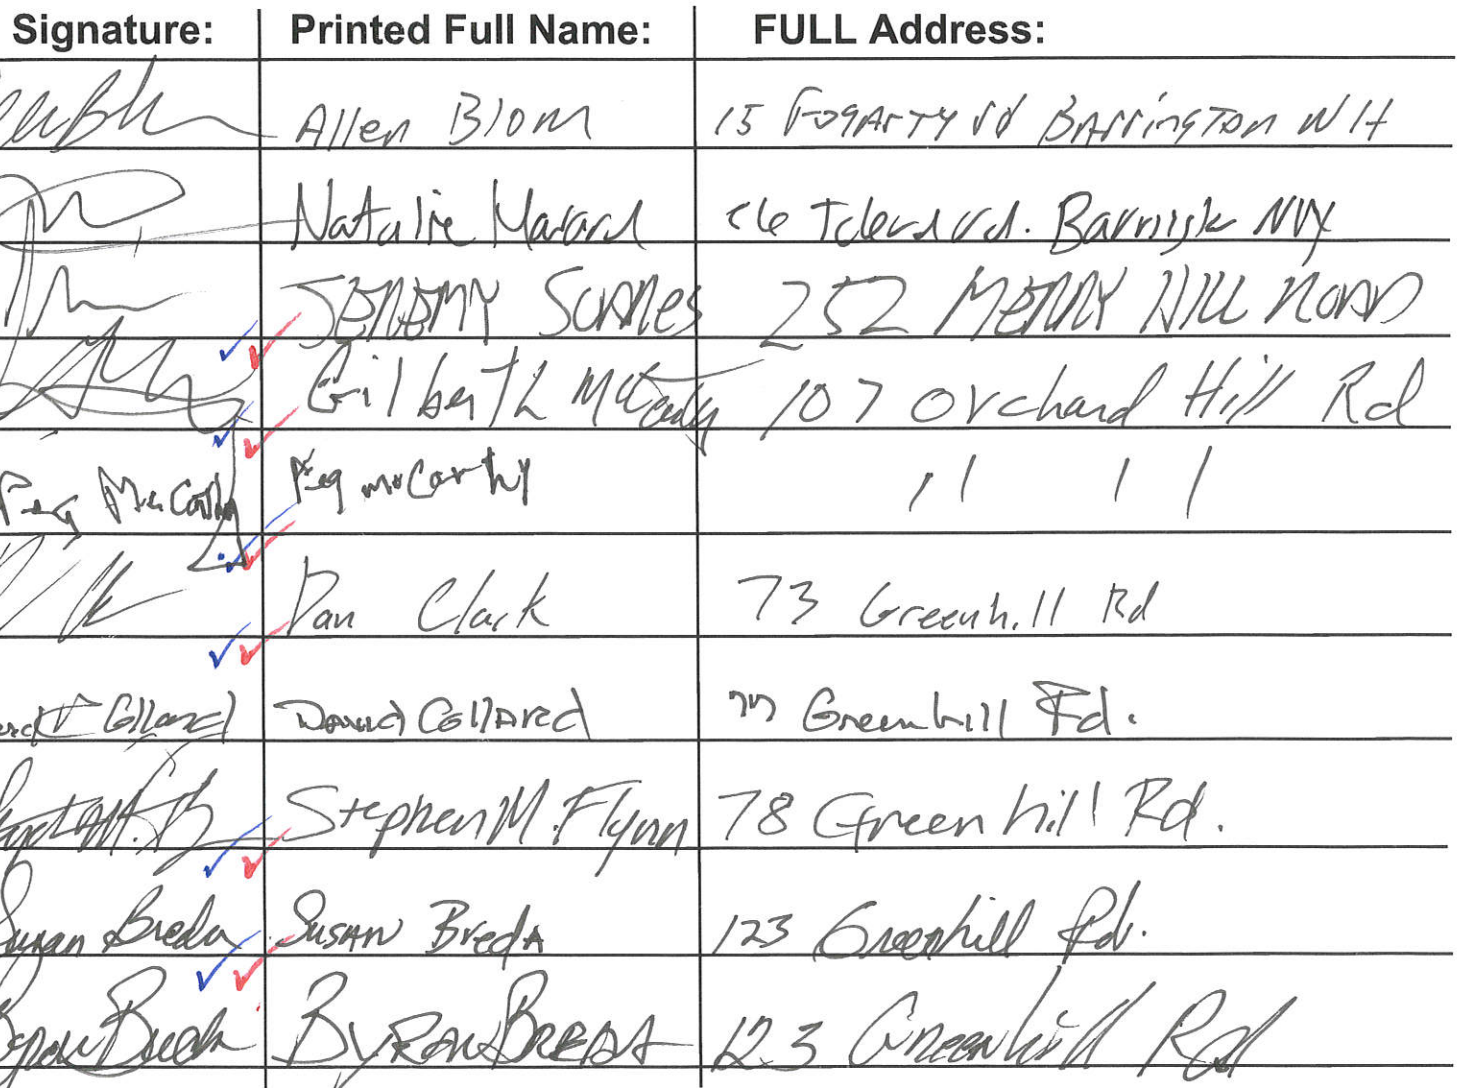 Signature: Printed Full Name: FULL Address:
Allen Blom 15 Fogarty rd Barrington NH
Natalie rd. NH
JEREMY 252 MERRY HILL ROAD
Gilbert L McCarthy 107 Orchard Hill Rd
Peg McCarthy Peg McCarthy " "
Dan Clark 73 Greenhill Rd
David Collared 77 Greenhill Rd.
Stephen M. Flynn 78 Greenhill Rd.
Susan Breda Susan Breda 123 Greenhill Rd.
Byron Breda Byron Breda 123 Greenhill Rd